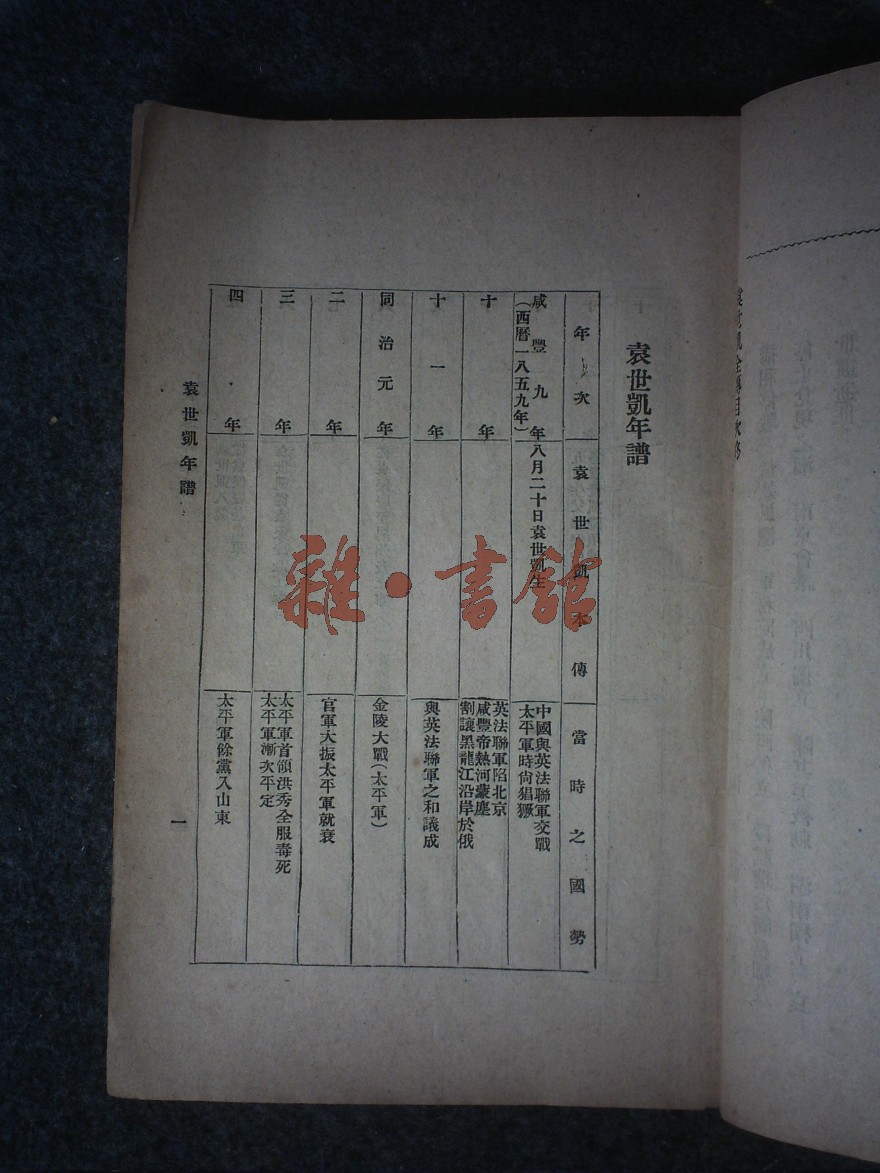 袁世凱年譜
年次
袁世凱本傳
當時之國勢
咸豐九年
(西曆一八五九年)
八月二十日袁世凱生
中國與英法聯軍交戰
太平軍時尚猖獗
十年
英法聯軍陷北京
咸豐帝熱河蒙塵
割讓黑龍江沿岸於俄
十一年
與英法聯軍之和議成
同治元年
金陵大戰(太平軍)
二年
官軍大振太平軍就衰
三年
太平軍首領洪秀全服毒死
太平軍漸次平定
四年
太平軍餘黨入山東
袁世凱年譜
一
雜·書館